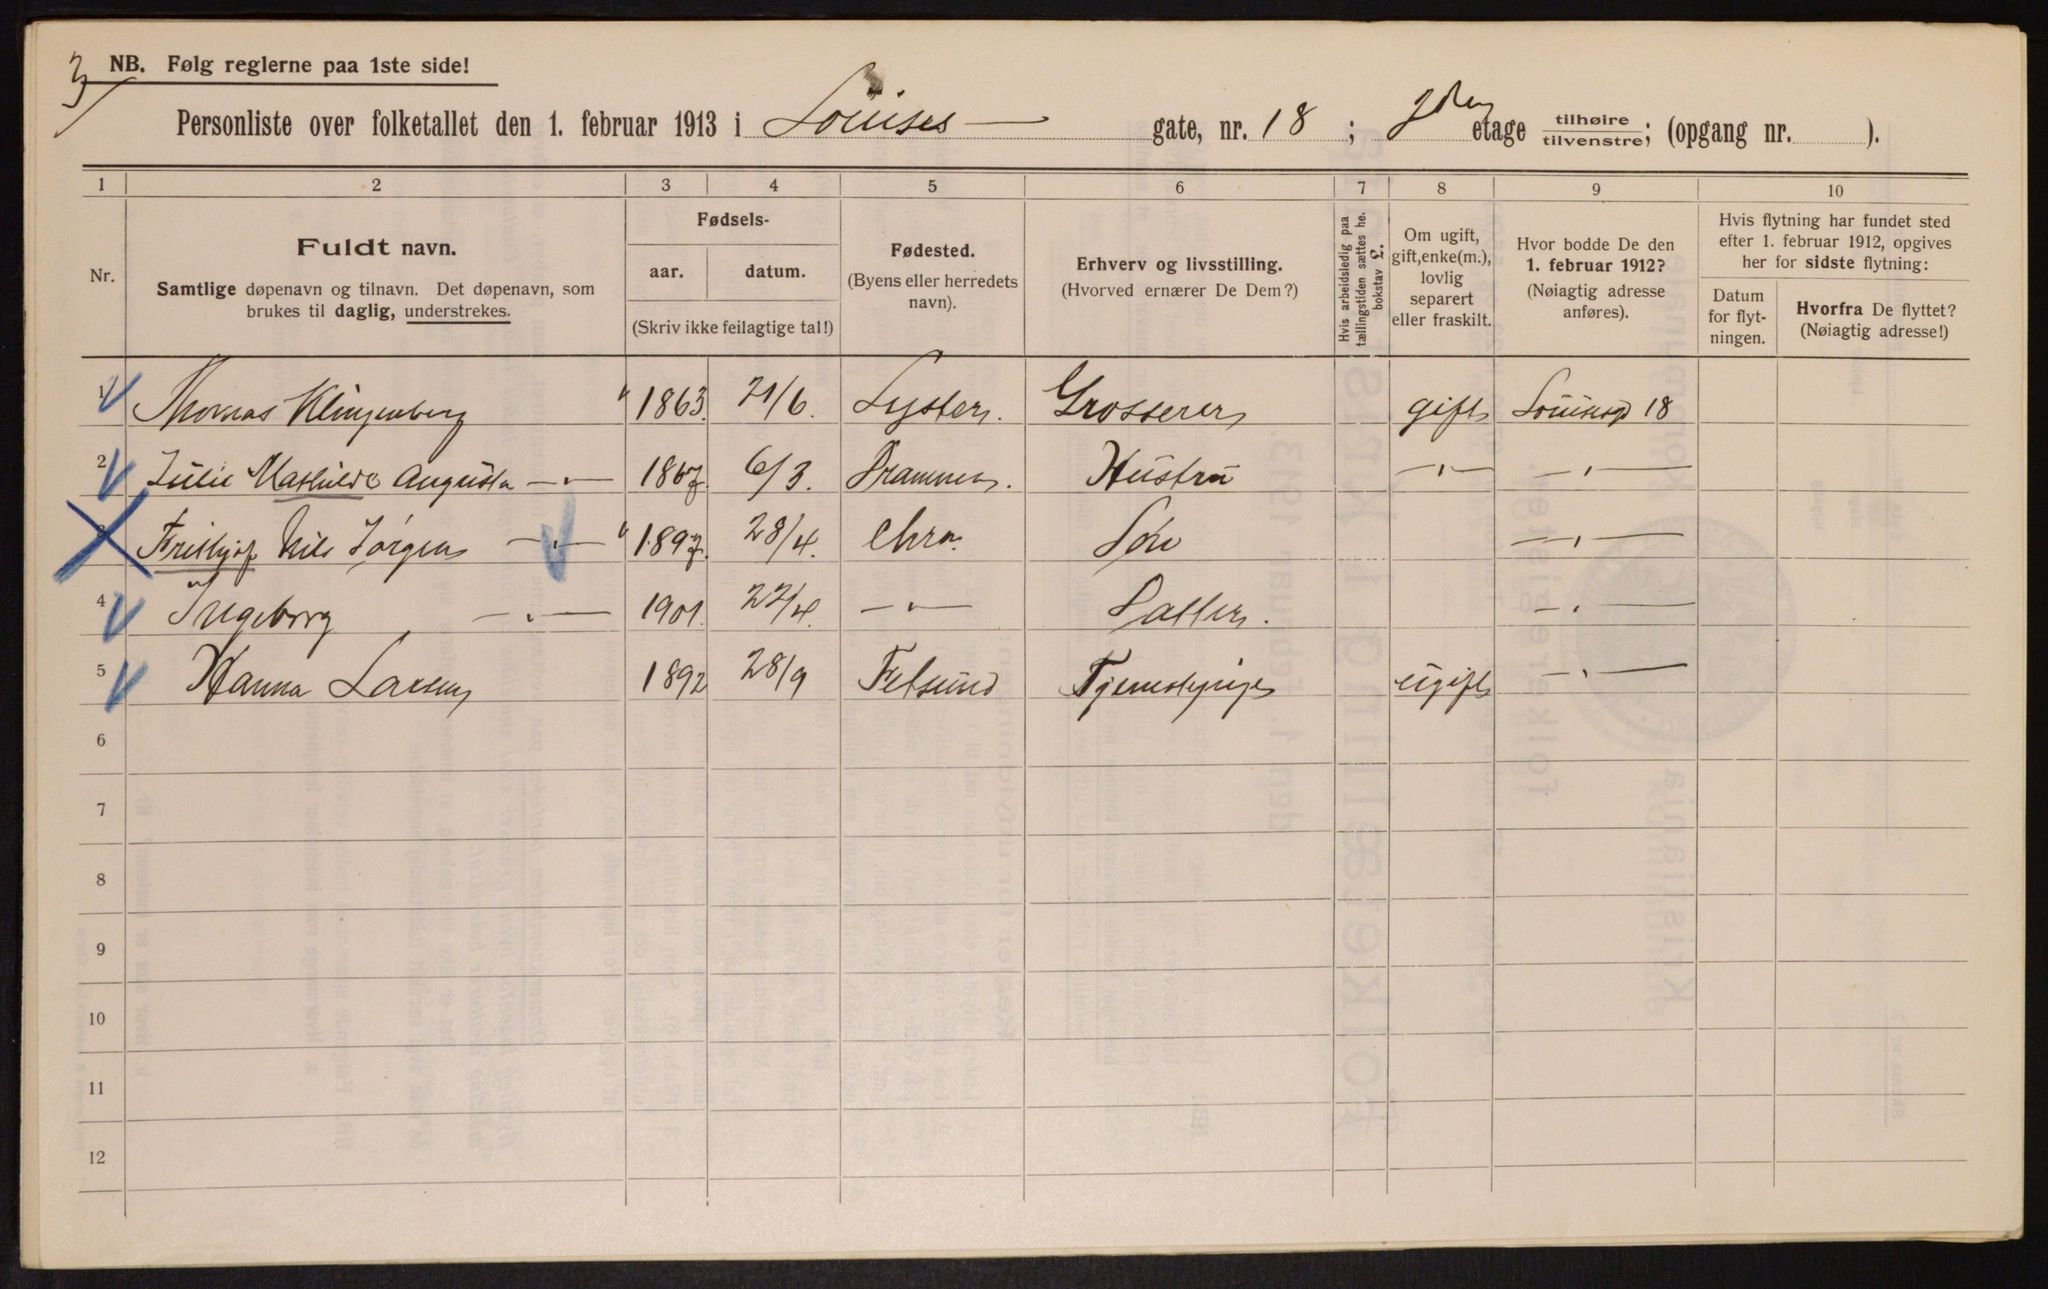 3/
NB. Følg reglerne paa 1ste side!
Personliste over folketallet den 1. februar 1913 i Louises — gate, nr. 18 ; etage tilhøire / tilvenstre ; (opgang nr. ).
1 2 3 4 5 6 7 8 9 10
Nr.
Fuldt navn.
Samtlige døpenavn og tilnavn. Det døpenavn, som
brukes til daglig, understrekes.
Fødsels-
aar. datum.
(Skriv ikke feilagtige tal!)
Fødested.
(Byens eller herredets
navn).
Erhverv og livsstilling.
(Hvorved ernærer De Dem?)
Hvis arbeidsledig paa
tællingstiden sættes he.
bokstav L.
Om ugift,
gift, enke(m.),
lovlig
separert
eller fraskilt.
Hvor bodde De den
1. februar 1912?
(Nøiagtig adresse
anføres).
Hvis flytning har fundet sted
efter 1. februar 1912, opgives
her for sidste flytning:
Datum
for flyt-
ningen.
Hvorfra De flyttet?
(Nøiagtig adresse!)
1 Thomas Klingenberg " 1863. 21/6. Lyster. Grosserer gift Louisesgd 18
2 Julie Mathilde Augusta —"— 1867 6/3. Drammen. Hustru —"— —"—
3 Frithjof Nils Jørgen —"— " 1897. 28/4. Chra. Søn —"—
4 Ingeborg —"— 1901. 22/4. —"— Datter. —"—
5 Hanna Larsen 1892 28/9 Fetsund Tjenestepige ugift —"—
6
7
8
9
10
11
12